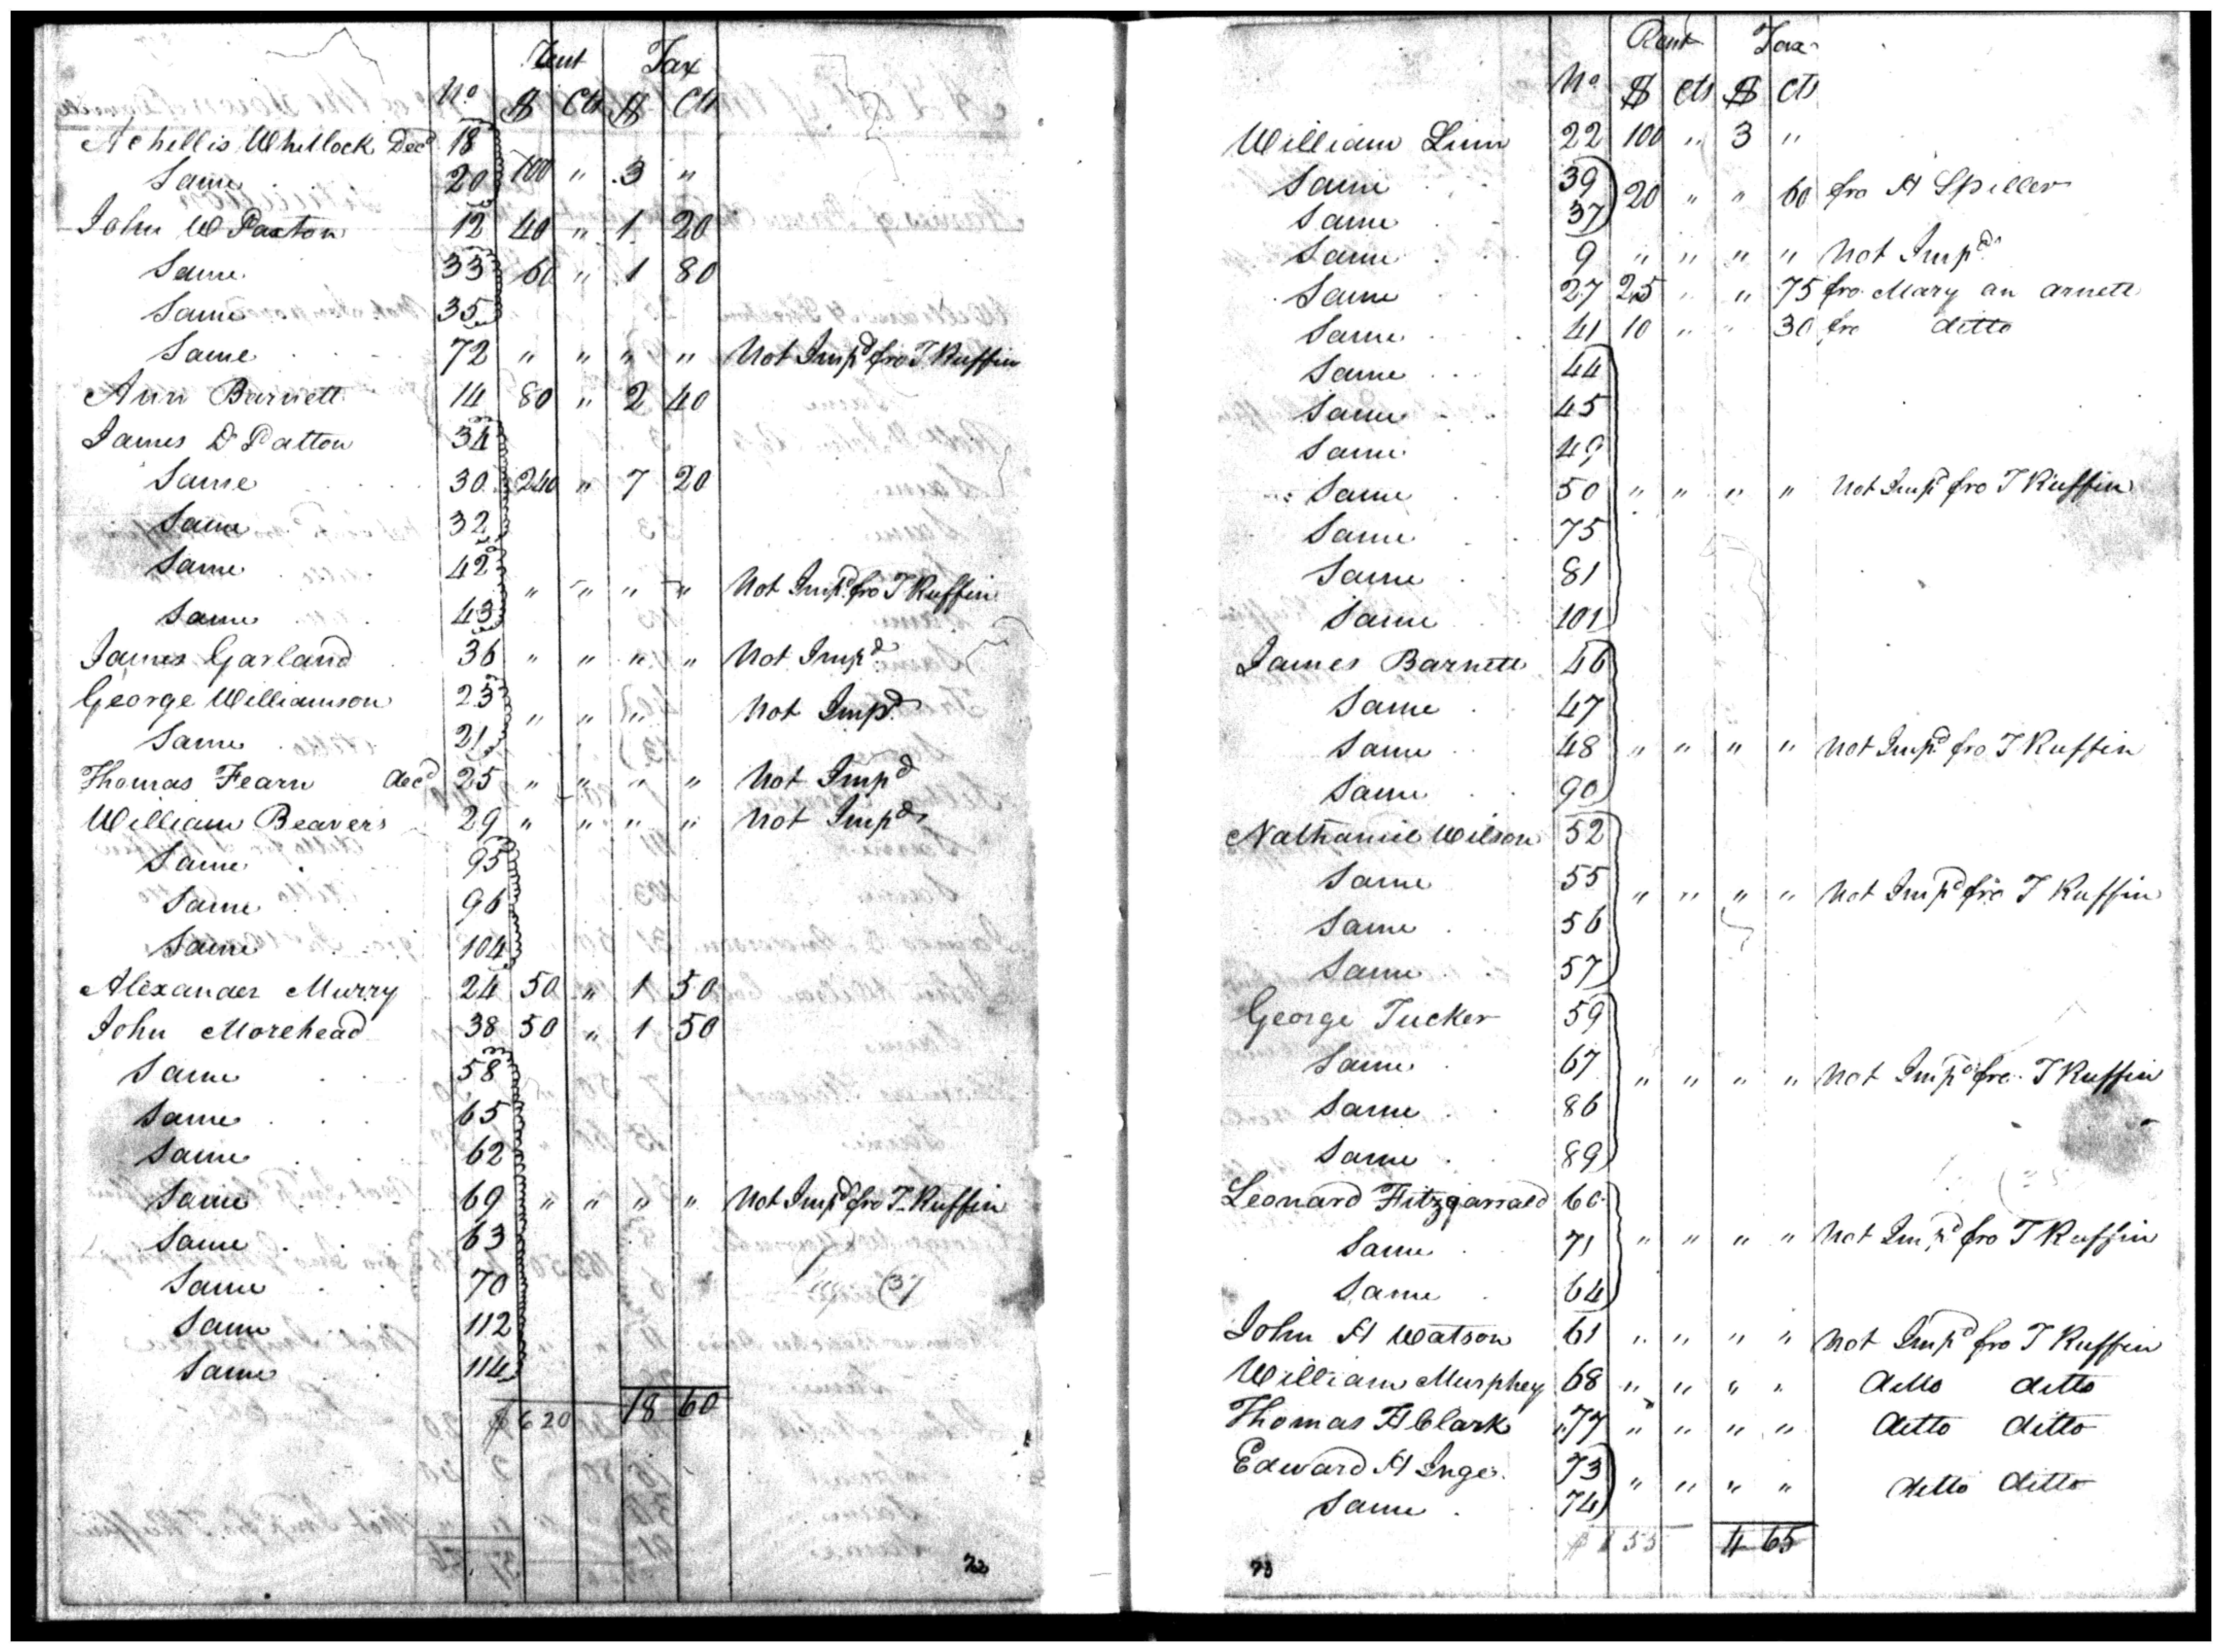 Rent Tax
No $ Cts $ Cts
Achillis Whitlock Decd 18
Same 20 100 " 3 "
John W Paxton 12 40 " 1 20
Same 33 60 " 1 80
Same 35
Same 72 " " " " Not Impd fro T Ruffin
Ann Barnett 14 80 " 2 40
James D Patton 34
Same 30 240 " 7 20
Same 32
Same 42
" " " " Not Impd fro T Ruffin
Same 43
James Garland 36 " " " " Not Impd
George Williamson 23
" " " Not Impd
Same 21
Thomas Fearn decd 25 " " " " Not Impd
William Beavers 29 " " " " Not Impd
Same 95
Same 96
Same 104
Alexander Murry 24 50 " 1 50
John Morehead 38 50 " 1 50
Same 58
Same 65
Same 62
Same 69 " " " " Not Impd fro T Ruffin
Same 63
Same 70
Same 112
Same 114
$620 18 60
72
Rent Tax
No $ cts $ cts
William Linn 22 100 " 3 "
Same 39
20 " " 60 fro H Spiller
Same 37
Same 9 " " " " Not Impd
Same 27 25 " " 75 fro Mary an arnett
Same 41 10 " " 30 fro ditto
Same 44
Same 45
Same 49
Same 50 " " " " Not Impd fro T Ruffin
Same 75
Same 81
Same 101
James Barnett 46
Same 47
Same 48 " " " " Not Impd fro T Ruffin
Same 90
Nathaniel Wilson 52
Same 55
" " " " Not Impd fro T Ruffin
Same 56
Same 57
George Tucker 59
Same 67
" " " " Not Impd fro T Ruffin
Same 86
Same 89
Leonard Fitzgarrald 60
Same 71 " " " " Not Impd fro T Ruffin
Same 64
John H Watson 61 " " " " Not Impd fro T Ruffin
William Murphey 68 " " " " ditto ditto
Thomas H Clark 77 " " " " ditto ditto
Edward H Inge 73
" " " " ditto ditto
Same 74
$155 4 65
73